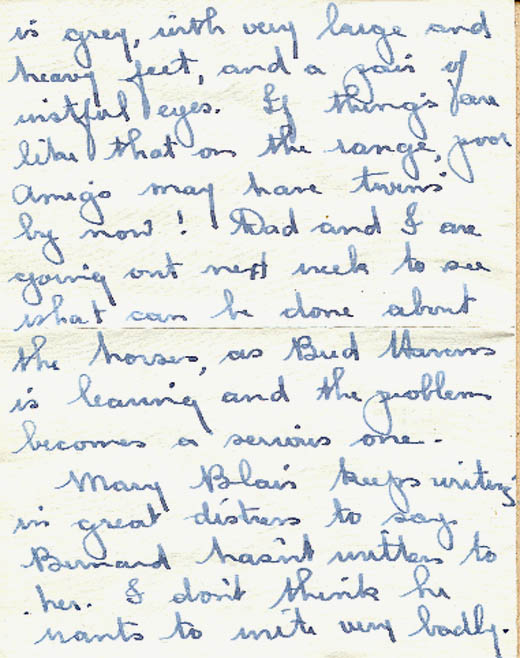 is grey, with very large and
heavy feet, and a pair of
wistful eyes. If things are
like that on the range, poor
Amigo may have twins
by now! Dad and I are
going out next week to see
what can be done about
the horses, as Bud
is leaving and the problem
becomes a serious one -
Mary Blair keeps writing
in great distress to say
Bernard hasn't written to
her. I don't think he
wants to write very badly.